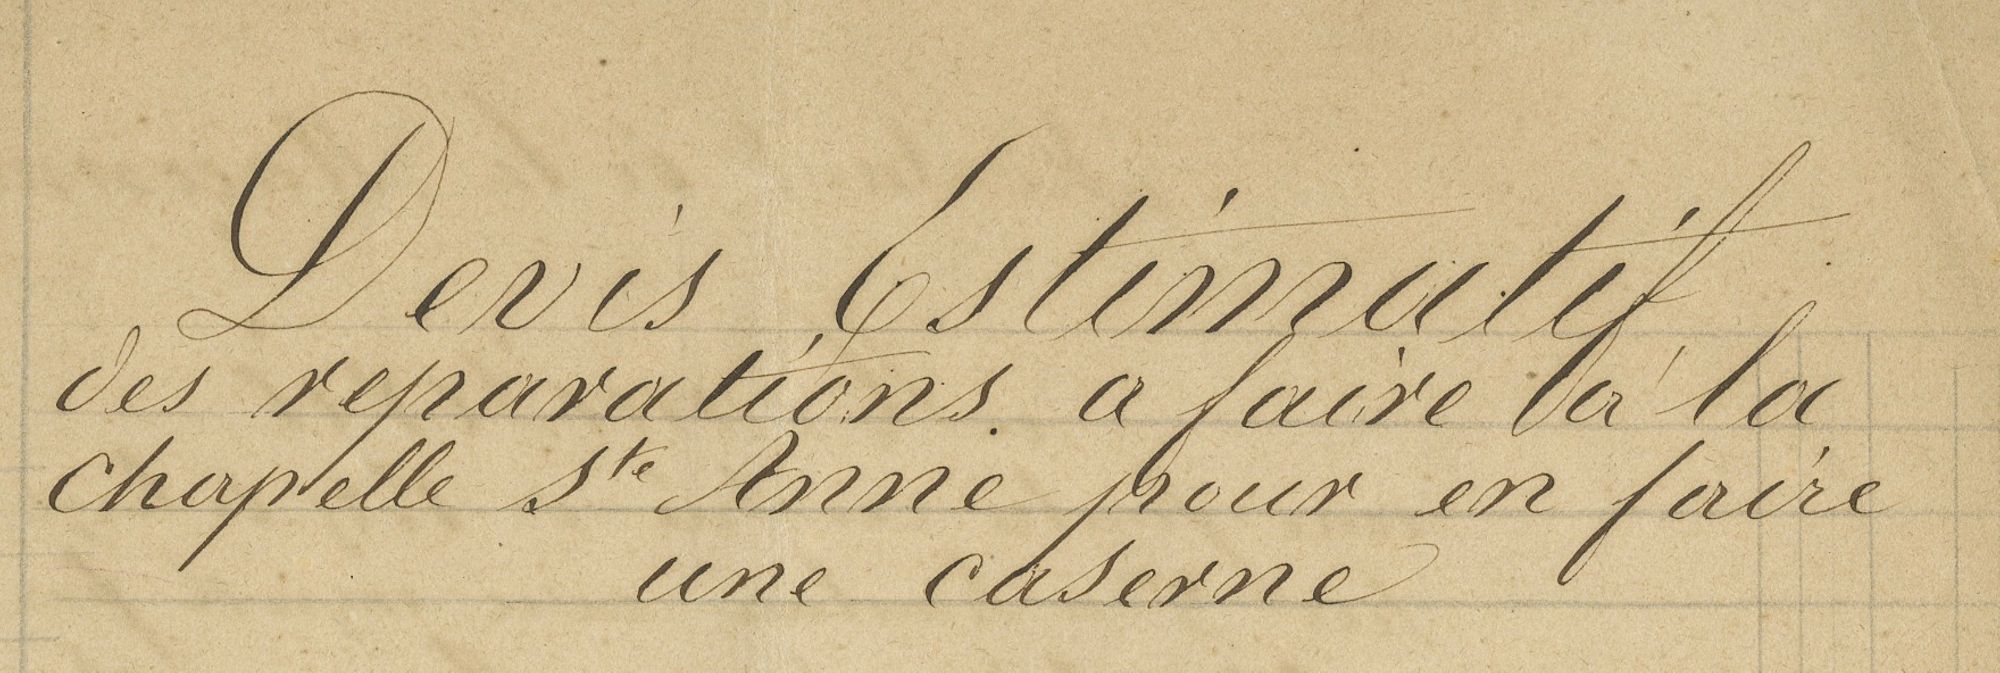 Devis Estimatif
des reparations a faire à la
chapelle Ste Anne pour en faire
une caserne